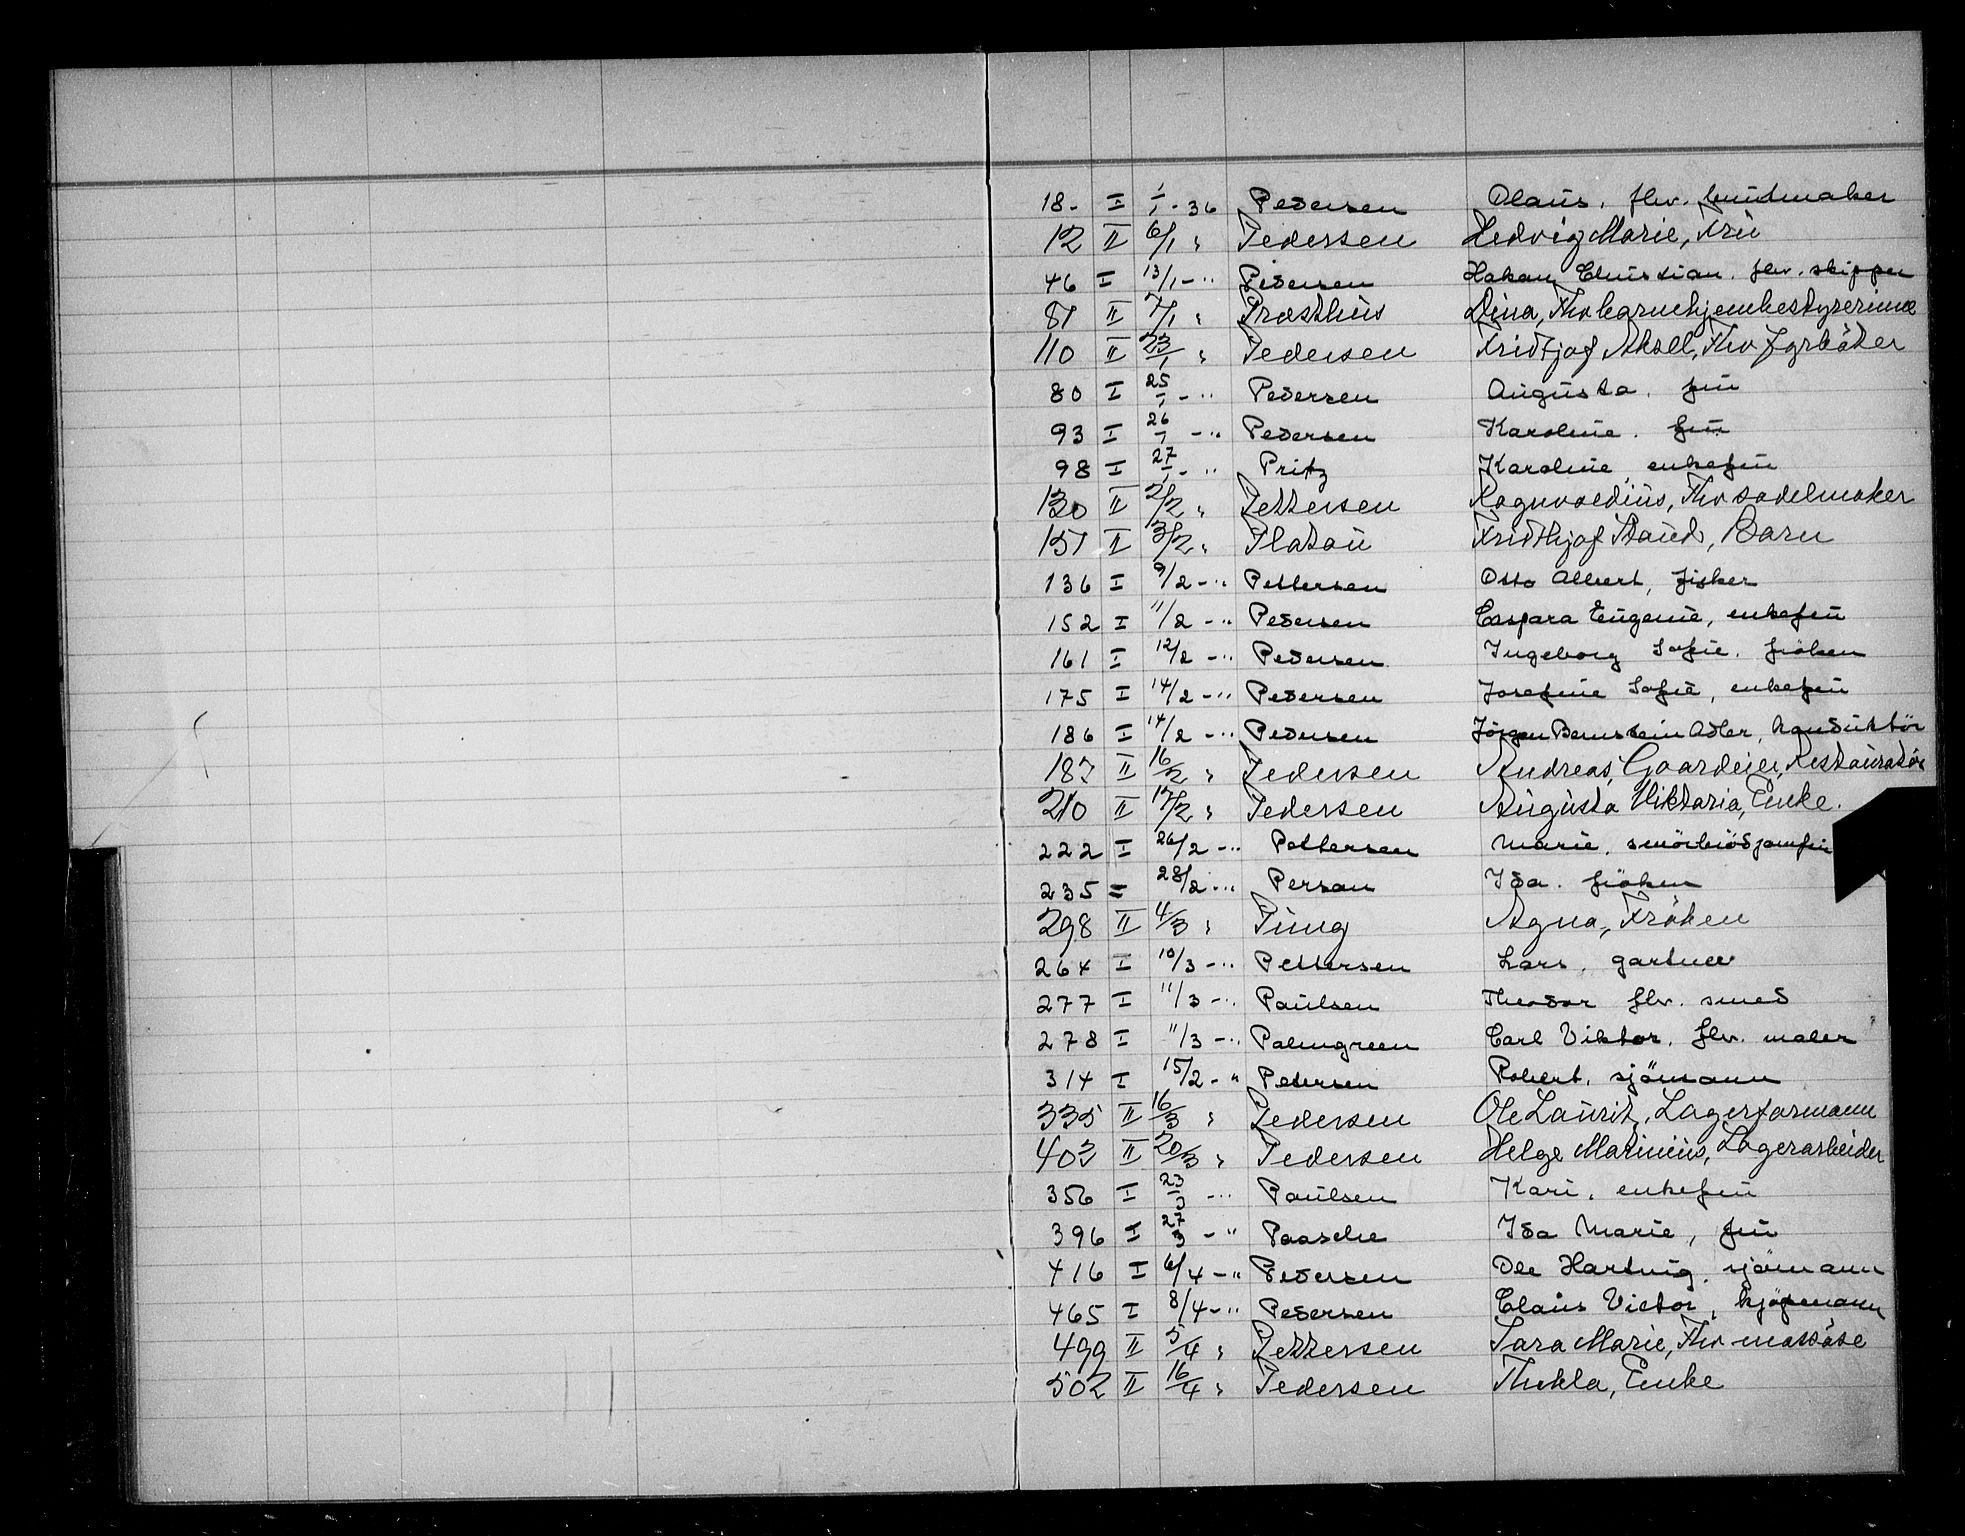 18- I 1/1 - 36 Pedersen Olaus, fhv. buntmaker
12 II 6/1 " Pedersen Hedvig Marie, Fru
46 I 13/1 - " Pedersen Hakan Christian. fhv. skipper
87 II 7/1 " Præsthus Dina, Fhv barnehjembestyrerinne
110 II 23/1 " Pedersen Fridtjof Aksel, Fhv fyrbøter
80 I 25/1 - " Pedersen Augusta. fru
93 I 26/1 - " Pedersen Karoline. fru
98 I 27/1 - " Pritz Karoline enkefru
130 II 2/2 " Pettersen Ragnvaldius, Fhv sadelmaker
157 II 3/2 " Platou Fridthjof Staud, Barn
136 I 9/2 - " Pettersen Otto Albert, fisker
152 I 11/2 - " Pedersen Caspara Eugenie, enkefru
161 I 12/2 - " Pedersen Ingeborg Sofie. frøken
175 I 14/2 - " Pedersen Josefine Sofie, enkefru
186 I 14/2 - " Pedersen Jörgen Bernstein Adler, konduktör
187 II 16/2 " Pedersen Andreas, Gaardeier, Restauratør
210 II 17/2 " Pedersen Augusta Viktoria, Enke.
222 I 26/2 - " Pettersen Marie. smörbrödjomfru
235 = 28/2 - " Person Ida. fröken
298 II 4/3 " Pung Agna, Frøken
264 I 10/3 - " Pettersen Lars, gartner
277 I 11/3 - " Paulsen Theodor fhv. smed
278 I 11/3 - " Palmgreen Carl Viktor. fhv. maler
314 I 15/2 - " Petersen Robert. sjömann
335 II 16/3 " Pedersen Ole Laurit, Lagerformann
403 II 20/3 " Pedersen Helge Marinius, Lagerarbeider
356 I 23/3 - " Paulsen Kari, enkefru
396 I 27/3 - " Paasche Ida Marie, fru
416 I 6/4 - " Pedersen Ole Hartvig, sjömann
465 I 8/4 - " Pedersen Claus Victor, kjøpmann
499 II 5/4 " Pettersen Sara Marie, Fhv massøse
502 II 16/4 " Pedersen Thekla, Enke